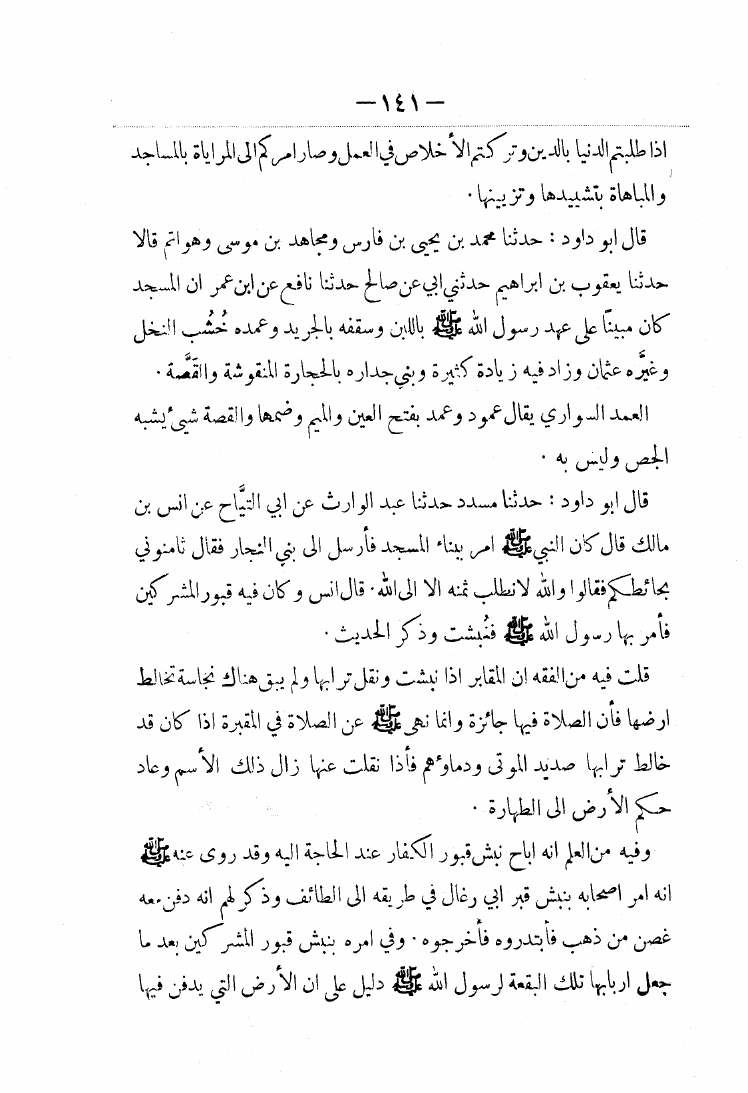 — ١٤١ —
اذا طلبتم الدنيا بالدين وتركتم الأخلاص في العمل وصار امركم الى المراياة بالمساجد
والمباهاة بتشييدها وتزيينها ·
قال ابو داود : حدثنا محمد بن يحيى بن فارس ومجاهد بن موسى وهو اتم قالا
حدثنا يعقوب بن ابراهيم حدثني ابي عن صالح حدثنا نافع عن ابن عمر ان المسجد
كان مبينًا على عهد رسول الله ﷺ باللبن وسقفه بالجريد وعمده خُشُب النخل
وغيَّره عثمان وزاد فيه زيادة كثيرة وبني جداره بالحجارة المنقوشة والقَصَّة ·
العمد السواري يقال عمود وعمد بفتح العين والميم وضمها والقصة شيئ يشبه
الجص وليس به ·
قال ابو داود : حدثنا مسدد حدثنا عبد الوارث عن ابي التيَّاح عن انس بن
مالك قال كان النبي ﷺ امر ببناء المسجد فأرسل الى بني النجار فقال ثامنوني
بحائطكم فقالوا والله لا نطلب ثمنه الا الى الله · قال انس وكان فيه قبور المشركين
فأمر بها رسول الله ﷺ فنُبشت وذكر الحديث ·
قلت فيه من الفقه ان المقابر اذا نبشت ونقل ترابها ولم يبق هناك نجاسة تخالط
ارضها فأن الصلاة فيها جائزة وانما نهى ﷺ عن الصلاة في المقبرة اذا كان قد
خالط ترابها صديد الموتى ودماؤهم فأذا نقلت عنها زال ذلك الأسم وعاد
حكم الأرض الى الطهارة ·
وفيه من العلم انه اباح نبش قبور الكفار عند الحاجة اليه وقد روى عنه ﷺ
انه امر اصحابه بنبش قبر ابي رغال في طريقه الى الطائف وذكر لهم انه دفن معه
غصن من ذهب فأبتدروه فأخرجوه · وفي امره بنبش قبور المشركين بعد ما
جعل اربابها تلك البقعة لرسول الله ﷺ دليل على ان الأرض التي يدفن فيها